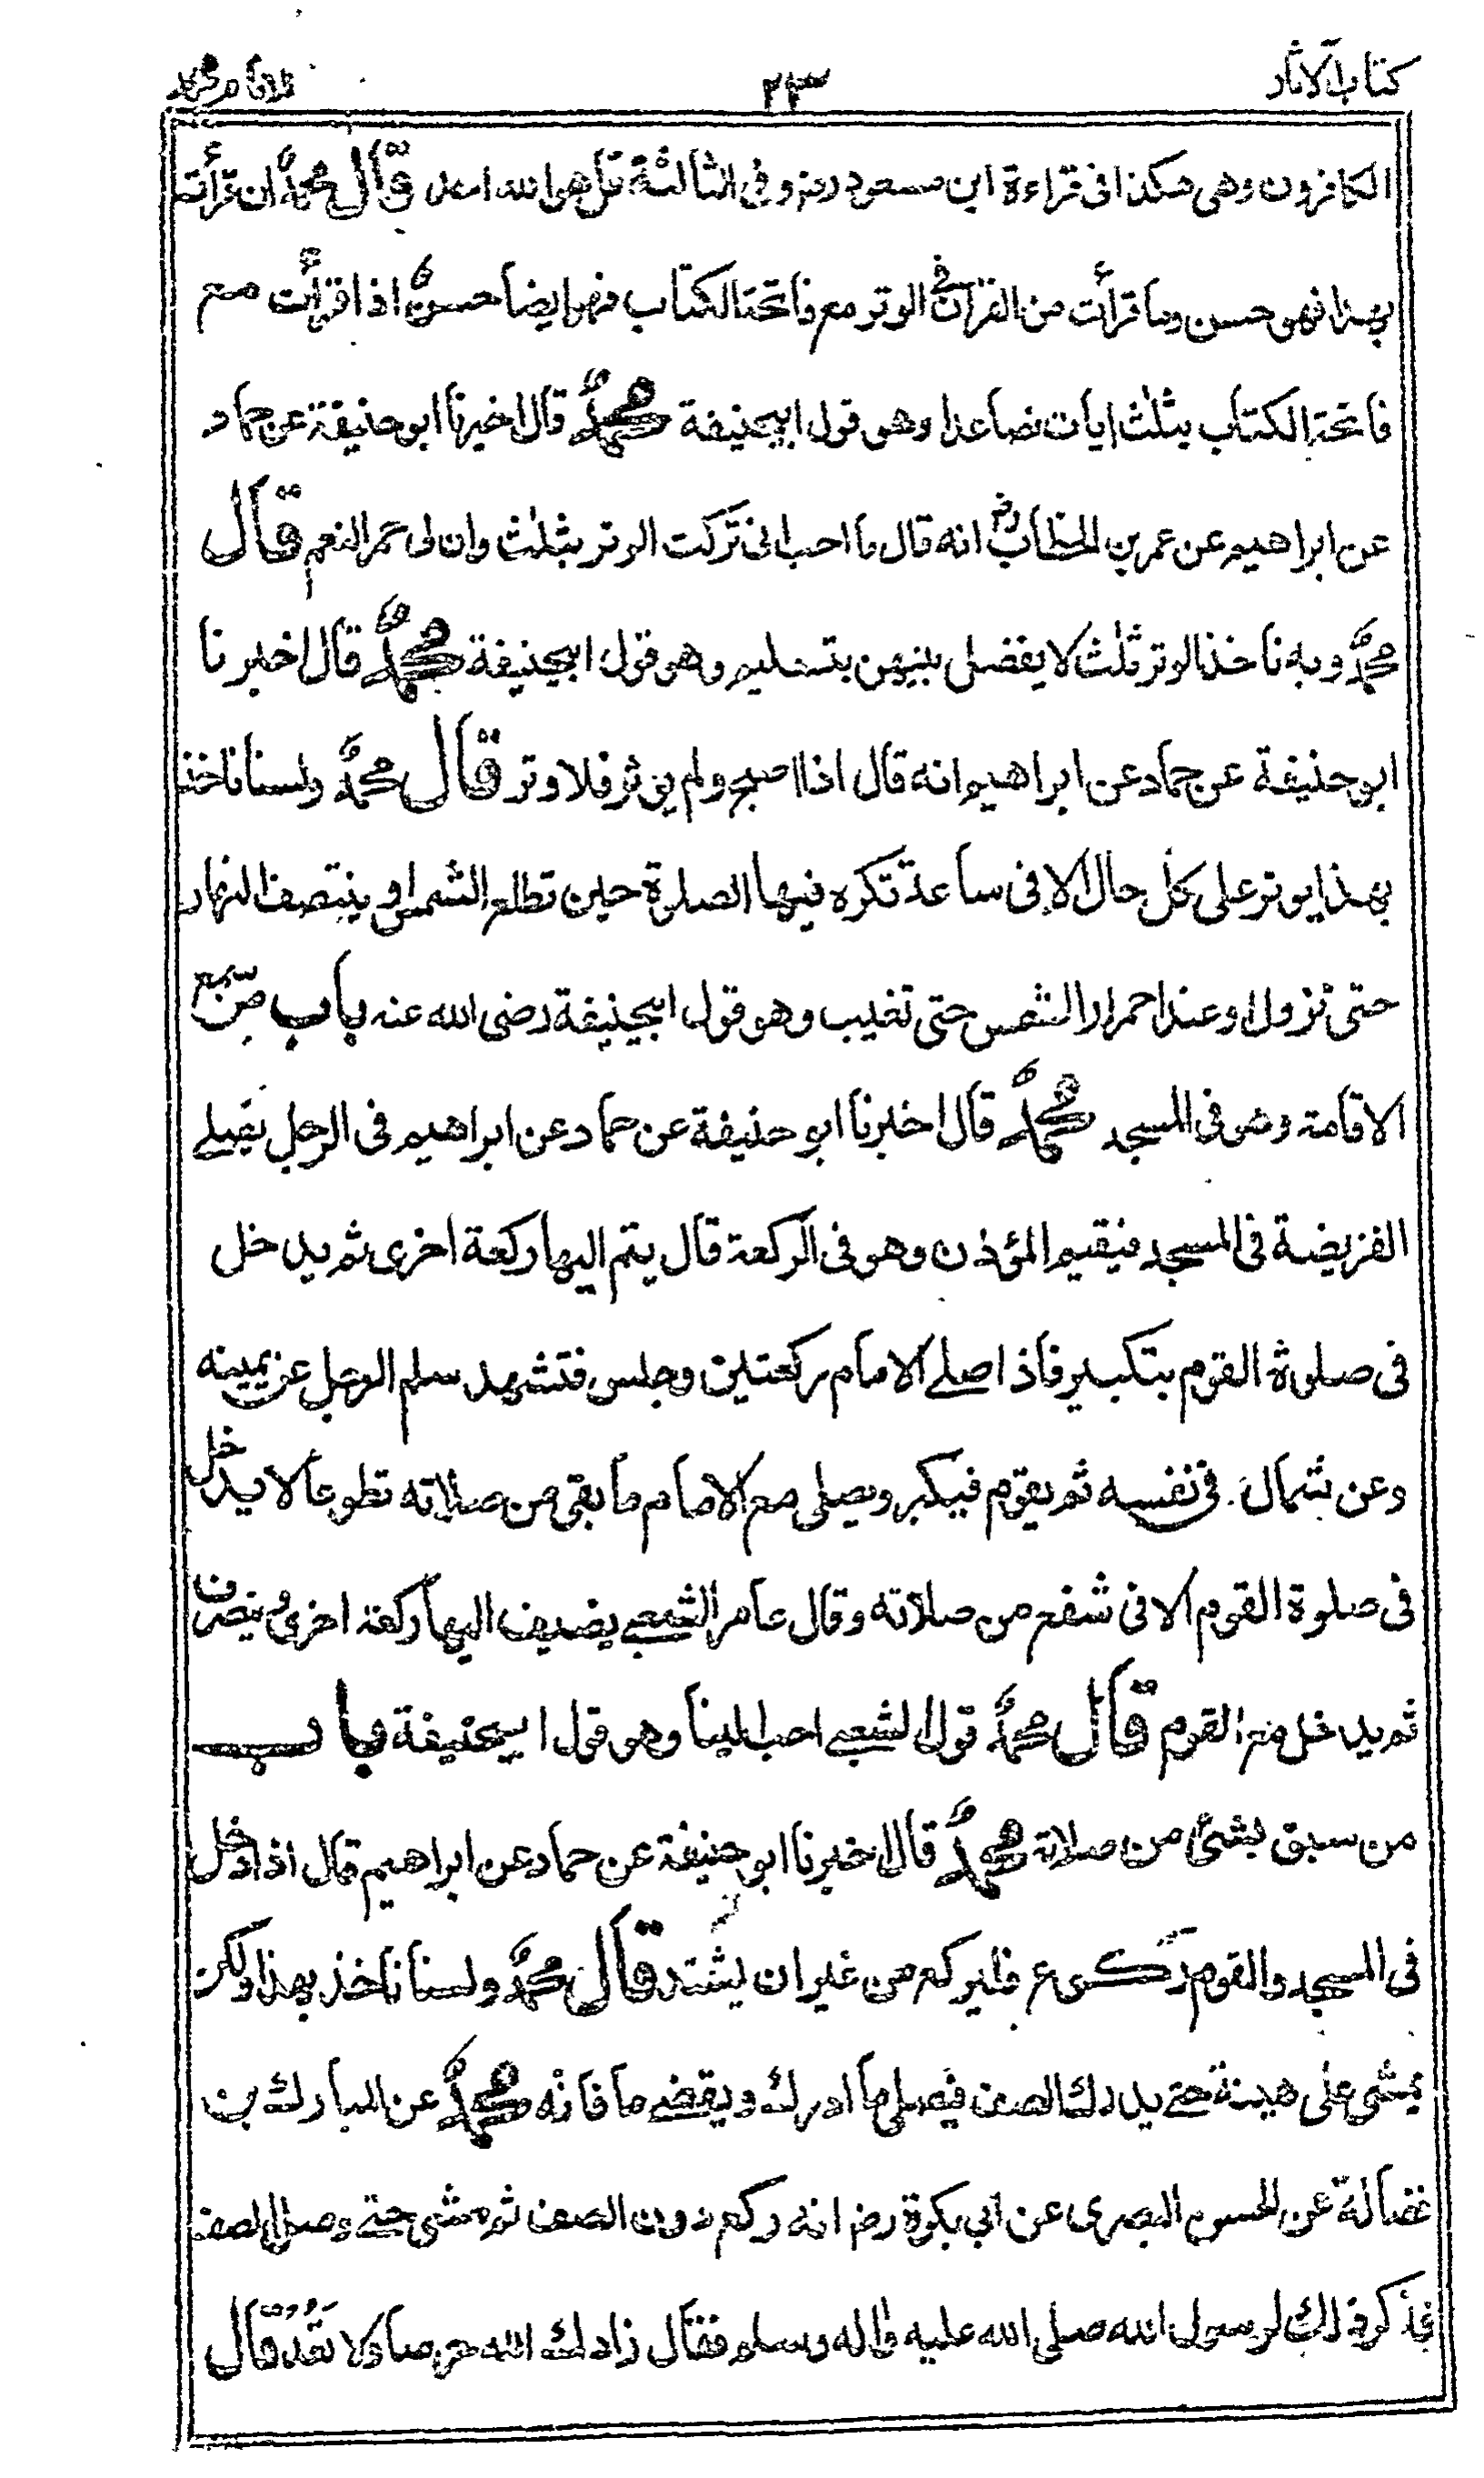 كتاب الآثار
٢٣
للامام محمد
الكافرون وهى هكذا فى قراءة ابن مسعود رضـ و فى الثالثة قل هو الله احد قال محمدٌ ان قرأت
بهذا فهو حسن وما قرأت من القرآن فى الوتر مع فاتحة الكتاب فهو ايضا حسنٌ اذا قرأت مع
فاتحة الكتاب بثلٰث ايات فصاعدا وهو قول ابيحنيفة محمدٌ قال اخبرنا ابو حنيفة عن حماد
عن ابراهيم عن عمر بن الخطاب رضـ انه قال ما احب انى تركت الوتر بثلٰث وان لى حمر النعم قال
محمدٌ وبه ناخذ الوتر ثلٰث لا يفصل بينهن بتسليم وهو قول ابيحنيفة محمدٌ قال اخبرنا
ابو حنيفة عن حماد عن ابراهيم انه قال اذا اصبح ولم يوتر فلا وتر قال محمدٌ ولسنا ناخذ
بهذا يوتر على كل حال الا فى ساعة تكره فيها الصلوة حين تطلع الشمس او ينتصف النهار
حتى تزول او عند احمرار الشمس حتى تغيب وهو قول ابيحنيفة رضى الله عنه باب من سمع
الاقامة وهو فى المسجد محمدٌ قال اخبرنا ابو حنيفة عن حماد عن ابراهيم فى الرجل يصلے
الفريضة فى المسجد فيقيم المؤذن وهو فى الركعة قال يتم اليها ركعة اخرى ثم يدخل
فى صلوة القوم بتكبير فاذا صلے الامام ركعتين وجلس فتشهد سلم الرجل عن يمينه
وعن شماله فى نفسه ثم يقوم فيكبر ويصلى مع الامام ما بقى من صلاته تطوعا لا يدخل
فى صلوة القوم الا فى شفع من صلاته وقال عامر الشعبے يضيف اليها ركعة اخرى وينصرف
ثم يدخل مع القوم قال محمدٌ قول الشعبے احب الينا وهو قول ابيحنيفة باب
من سبق بشئ من صلاته محمدٌ قال اخبرنا ابو حنيفة عن حماد عن ابراهيم قال اذا دخل
فى المسجد والقوم ركوع فليركع من غير ان يشتد قال محمدٌ ولسنا ناخذ بهذا ولكن
يمشى على هينة حتے يدرك الصف فيصلى ما ادرك ويقضے ما فاته محمدٌ عن المبارك بن
فضالة عن الحسن البصرى عن ابى بكرة رضـ انه ركع دون الصف ثم مشى حتے وصل الصف
فذكر ذلك لرسول الله صلى الله عليه واٰله وسلم فقال زادك الله حرصا ولا تَعُدْ قال